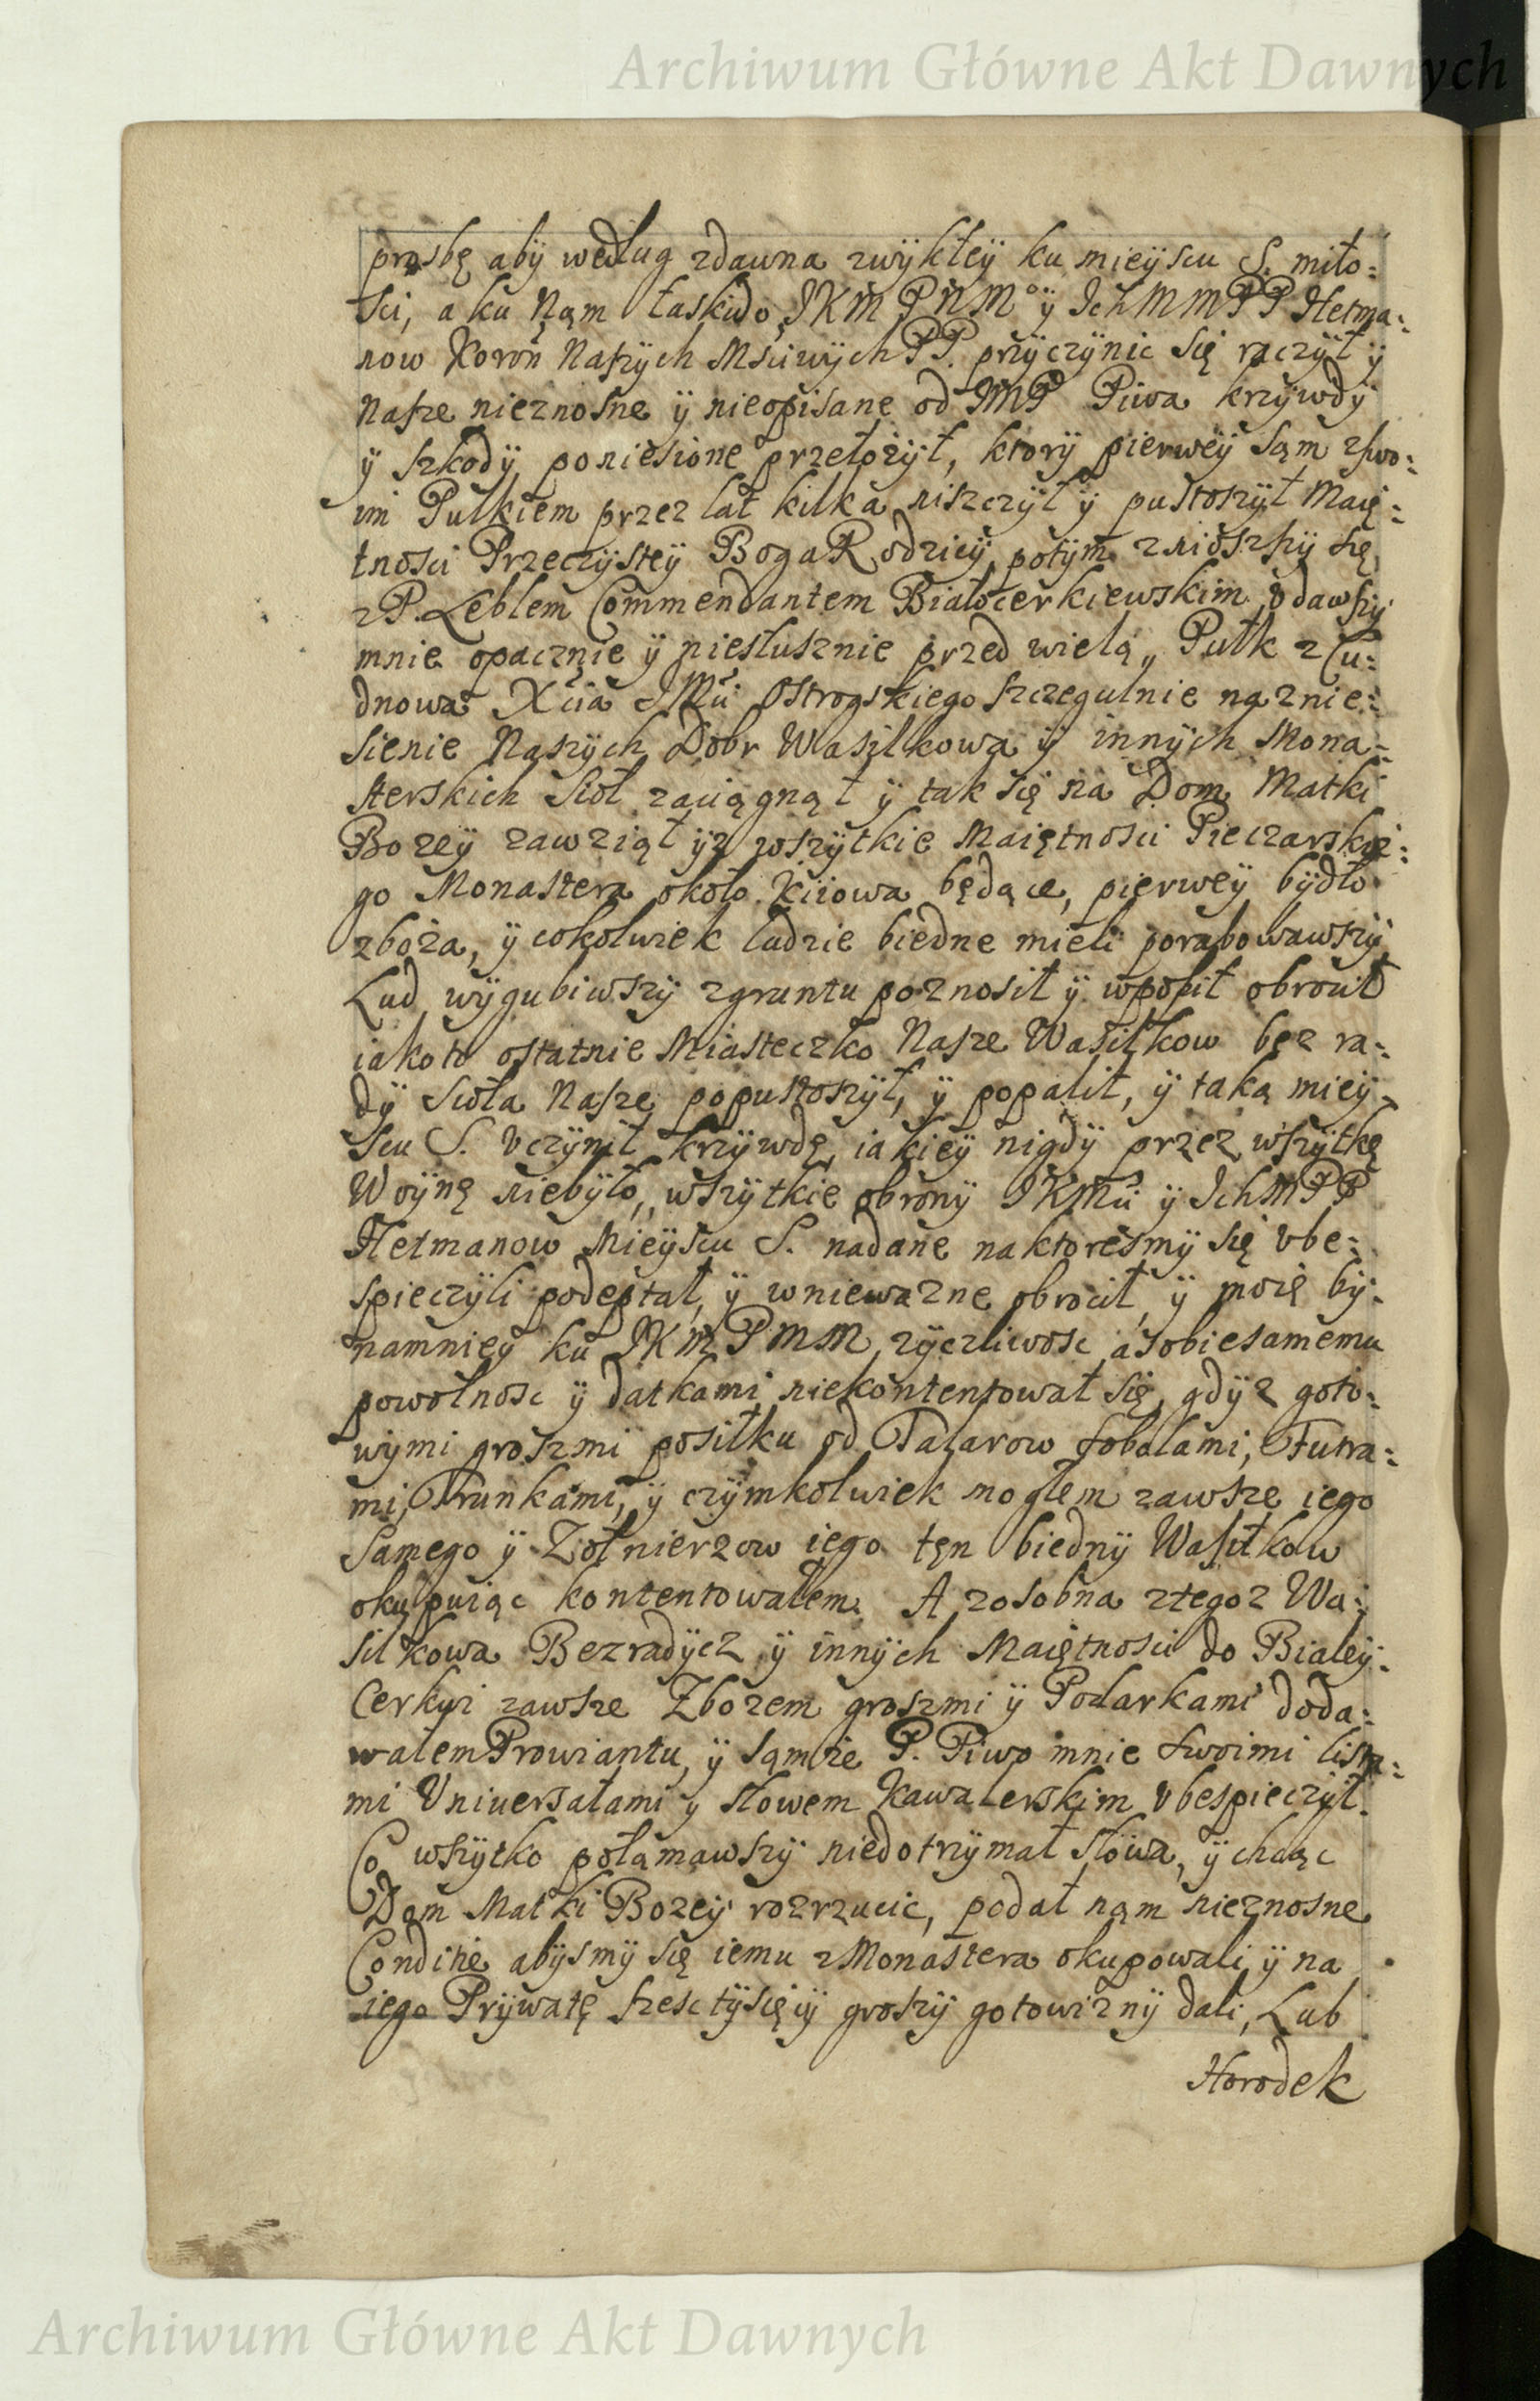 Archiwum Główne Akt Dawnych
prosbę abÿ według zdawna zwÿkłeÿ ku mieÿscu S. miło:
sci, a ku Nąm łaski do JKM PNMº ÿ Ich MM PP Hetma:
now Koroñ Naszÿch Msciwÿch PP. przÿczÿnic się raczÿł ÿ
Nasze nieznosne ÿ nieopisane od JMP Piwa krzÿwdÿ
ÿ szkodÿ poniesione przełozÿł, ktorÿ pierweÿ sąm zswo:
im Pułkiem przez lat kilka niszczÿł ÿ pustoszÿł Maię:
tnosci PrzeczÿsteÿBogaRodzicÿ potÿm znioszsÿ się
z P. Leblem Commendantem Białocerkiewskim, vdawszÿ
mnie opacznie ÿ niesłusznie przed wielą, Pułk z Cu:
dnowa Xcia JMci Ostrogskiego szczegulnie na znie:
sienie Naszÿch Dobr Wasilkowa ÿ innÿch Mona:
sterskich Sioł zaciągnął ÿ tak się na Dom Matki
Bozeÿ zawziął ÿz wszÿtkie Maiętnosci Pieczarskie:
go Monastera około Kiiowa będące, pierweÿ bÿdło
zboza, ÿ cokolwiek ludzie biedne mieli porabowawszÿ
Lud wÿgubiwszÿ zgruntu poznosił ÿ wpopił obrocił
iako to ostatnie Miasteczko Nasze Wasiłkow bez ra:
dÿ Sioła Nasze popustoszÿł, ÿ popalił, ÿ taką mieÿ:
scu S. vczÿnił krzÿwdę, iakieÿ nigdÿ przez wszÿtkę
Woÿnę niebÿło, wszÿtkie obronÿ JKMci ÿ IchMPP
Hetmanow Mieÿscu S. nadane na ktoresmÿ się vbe:
spieczÿli podeptał, ÿ wniewazne obrocił, ÿ moię bÿ:
namnieÿ ku JKM PMM, zÿczliwosc, a sobie samemu
powolnosc ÿ datkami niekontentował się, gdÿz goto:
wÿmi groszmi posiłku od Tatarow sobolami, Futra:
mi, Trunkami, ÿ czÿmkolwiek mogłem zawsze iego
Samego ÿ Zołnierzow iego tęn biednÿ Wasiłkow
okupuiąc kontentowałem. A zosobna ztegoz Wa:
silkowa Bezradÿcz ÿ innÿch Maiętnosci do Bialeÿ:
Cerkwi zawsze Zbozem groszmi ÿ Podarkami doda:
wałem Prowiantu, ÿ sąm ze P. Piwo mnie swoimi lista:
mi Uniuersałami y słowem Kawalerskim vbespieczÿł.
Co wszÿtko połamawszÿ niedotrzÿmał słowa, ÿ chcąc
Dom Matki Bozeÿ rozrzucic, podał nąm nieznosne
Conditie abÿsmÿ się iemu z Monastera okupowali, ÿ na
iego Prÿwatę szesc tÿsięcÿ groszÿ gotowiznÿ dali, Lub
Horodek
Archiwum Główne Akt Dawnych